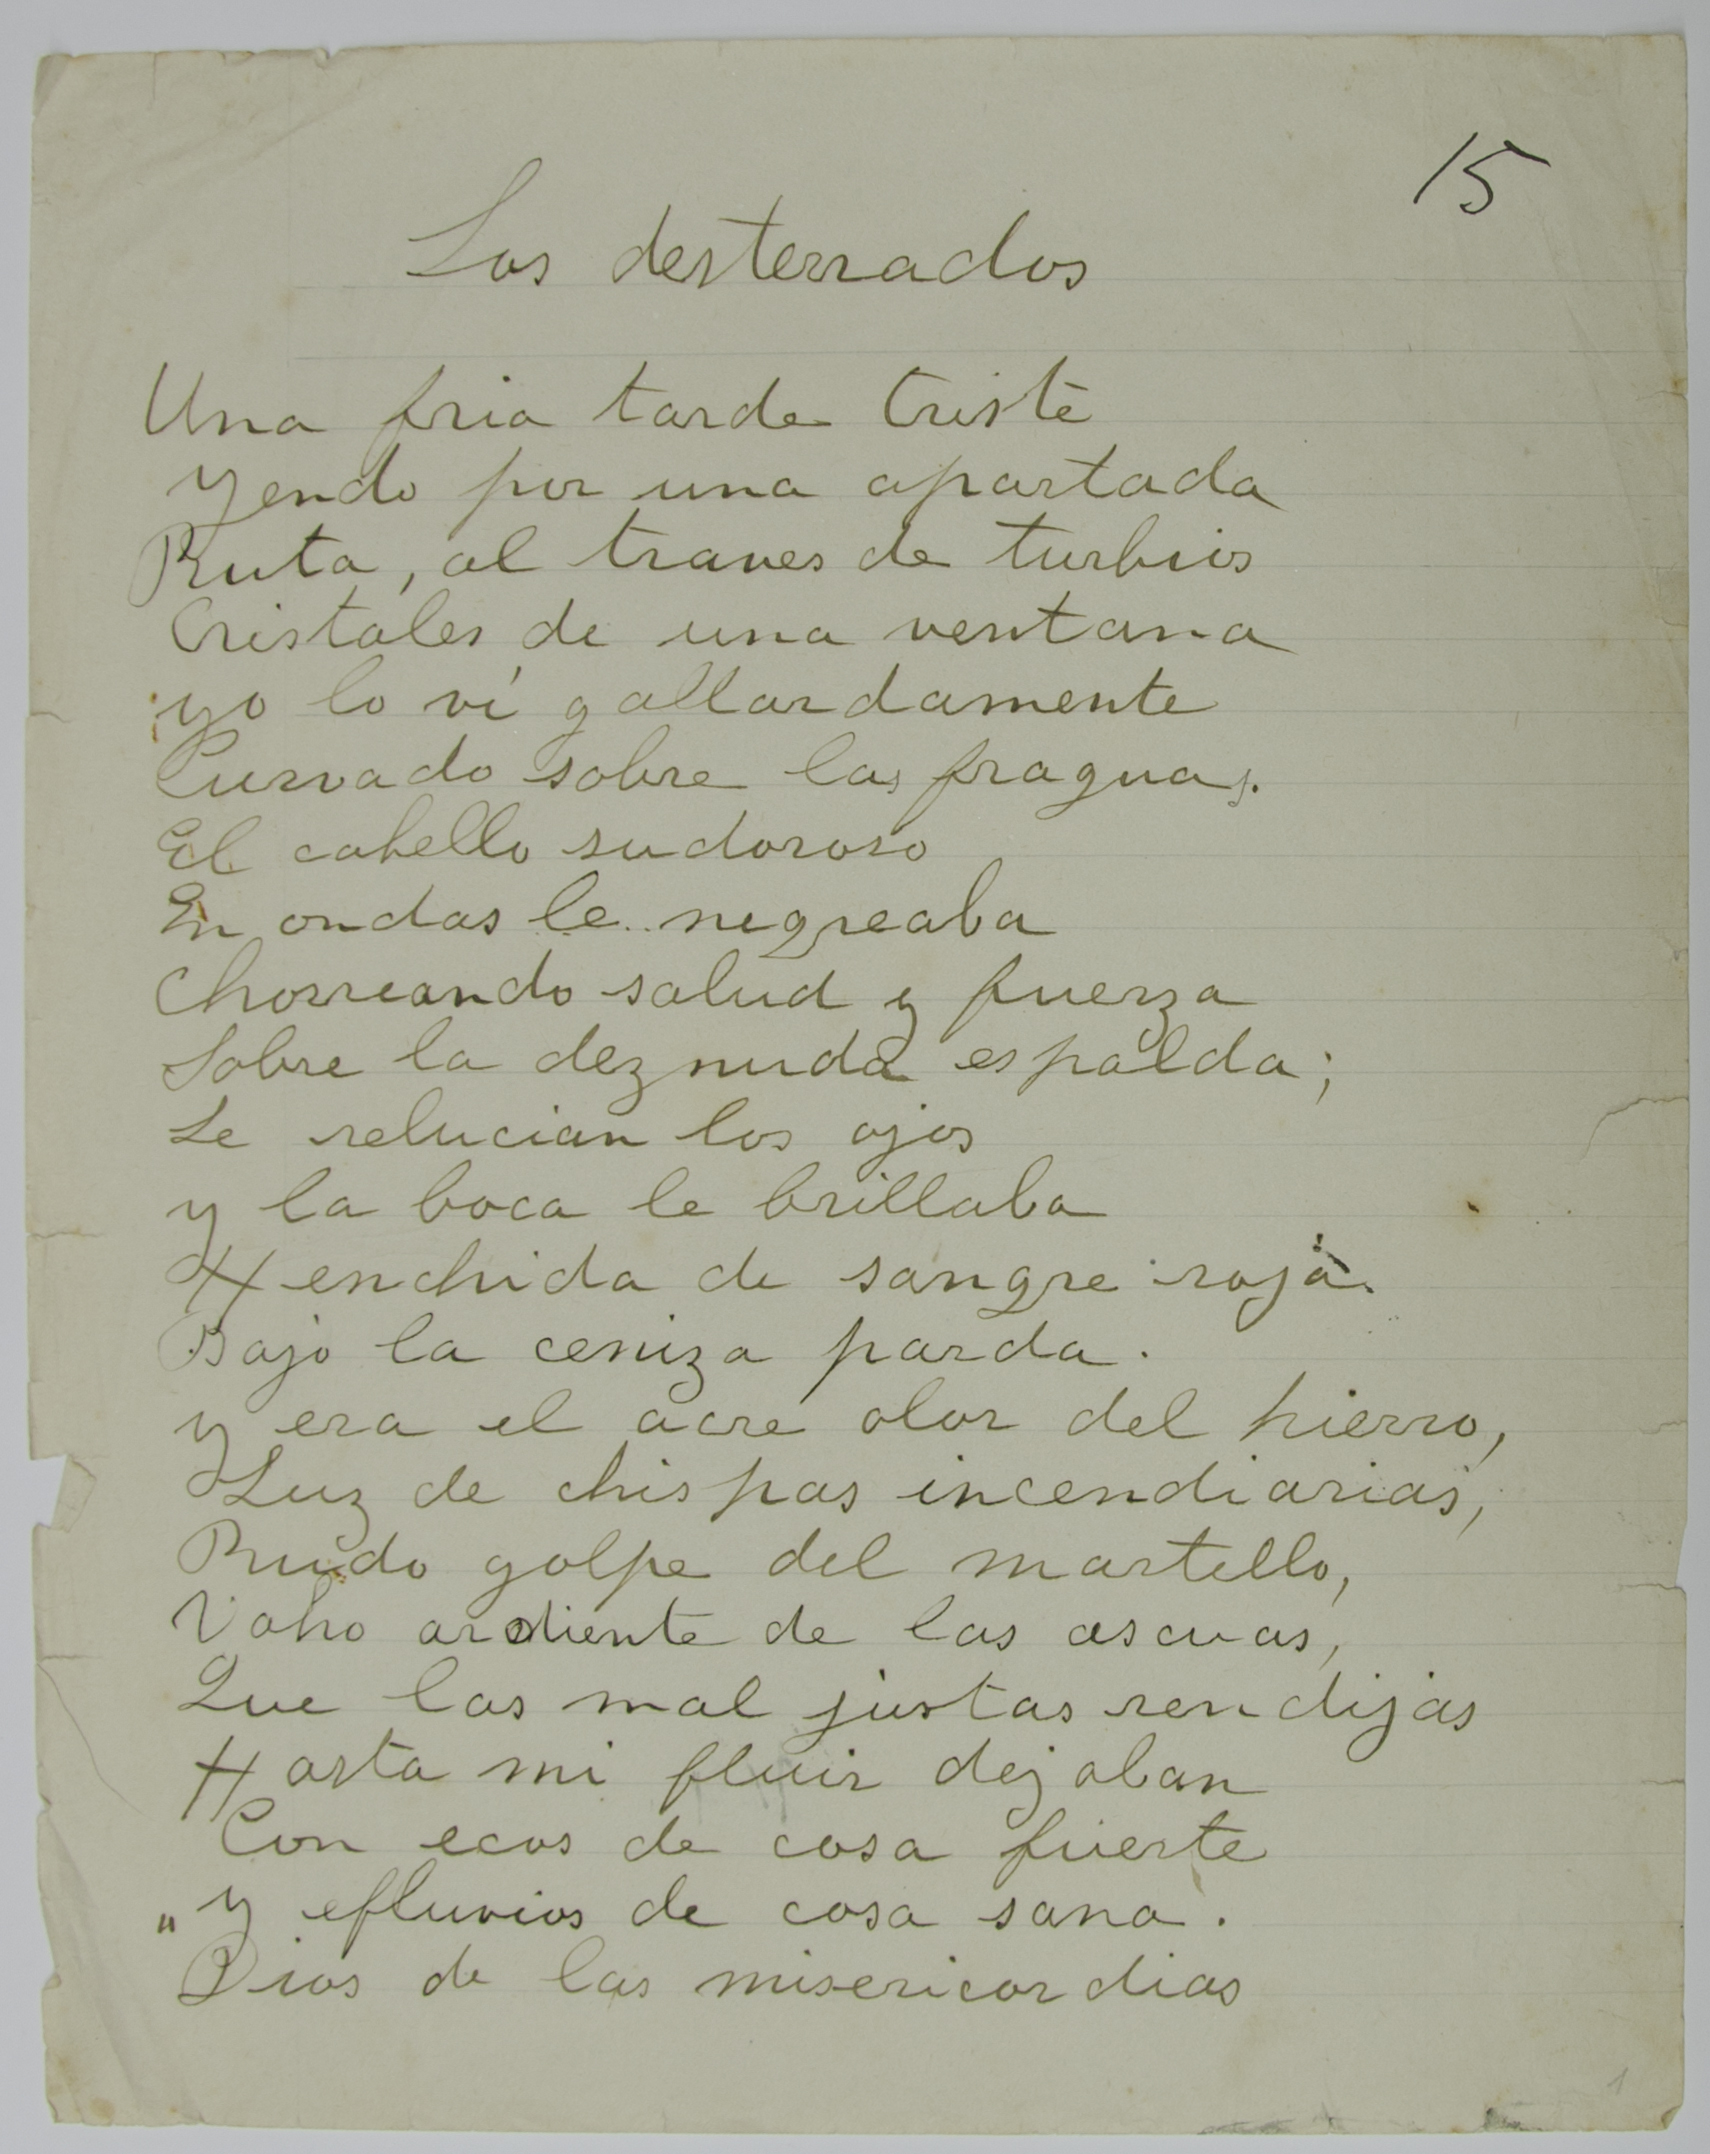 15
Los desterrados
Una fria tarde triste
Yendo por una apartada
Ruta, al traves de turbios
Cristales de una ventana
yo lo ví gallardamente
Curvado sobre las fraguas.
El cabello sudoroso
En ondas le negreaba
Chorreando salud y fuerza
Sobre la deznuda espalda;
Le relucian los ojos
y la boca le brillaba
Henchida de sangre roja
Bajo la ceniza parda.
y era el acre olor del hierro,
Luz de chispas incendiarias,
Rudo golpe del martello,
Vaho ardiente de las ascuas,
Que las mal justas rendijas
Hasta mi fluir dejaban
Con ecos de cosa fuerte
" y efluvios de cosa sana.
Dios de las misericordias
1